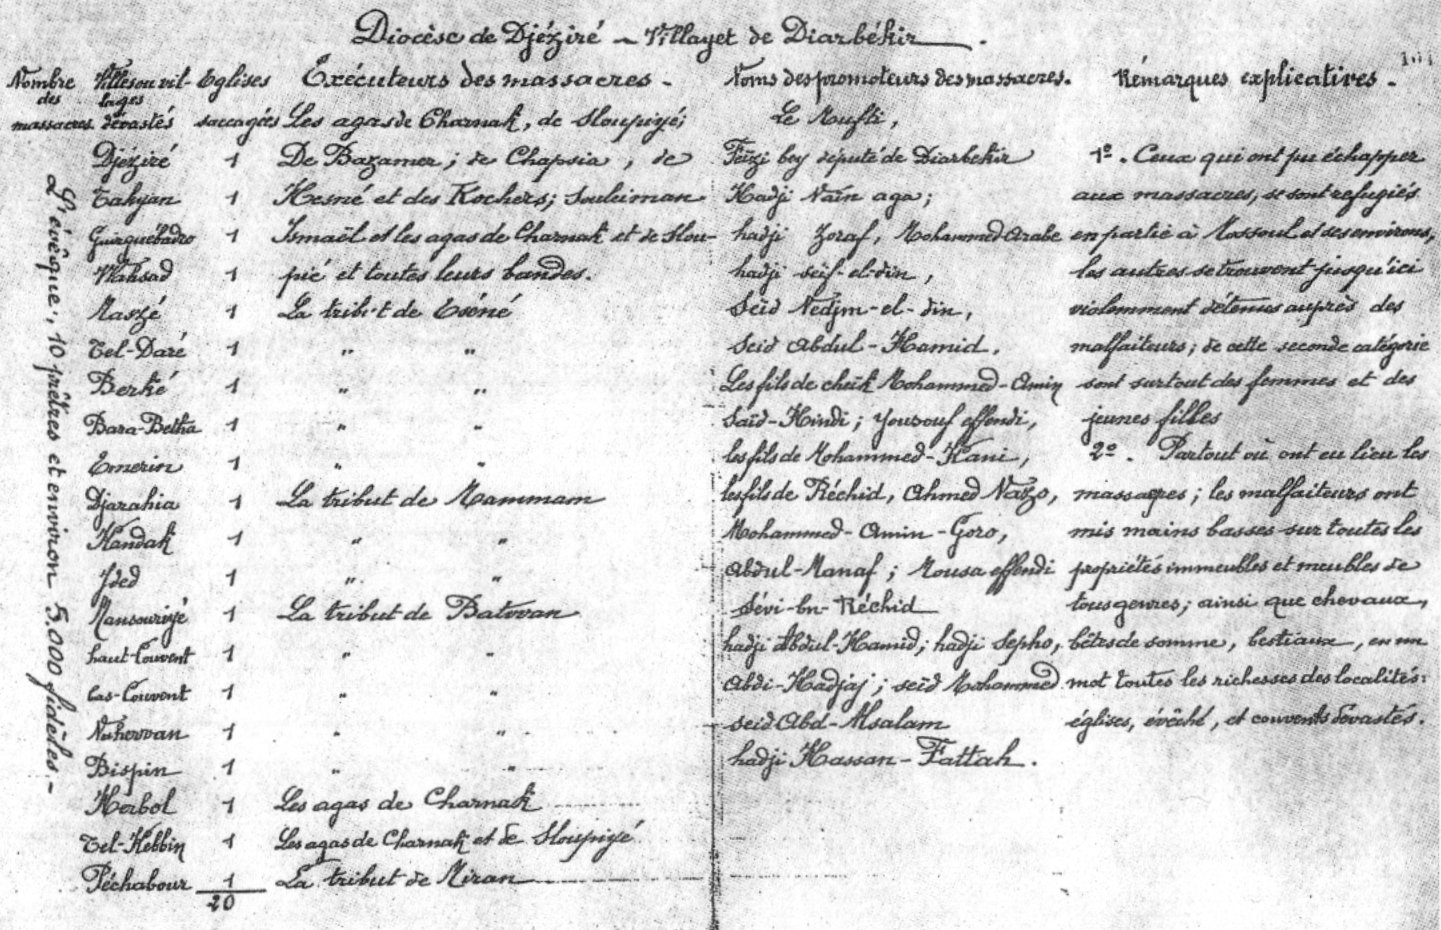 Diocèse de Djéziré – Villayet de Diarbékir.
Nombre des massacres
Villes ou villages dévastés
Eglises saccagées
Exécuteurs des massacres.
Noms des promoteurs des massacres.
Rémarques explicatives.
L'évêque, 10 prêtres et environ 5.000 fidèles.
Les agas de Charnak, de Sloupiyé;
Djéziré 1 De Bazamer; de Chapsia, de
Takyan 1 Hesné et des Kochers; Souleiman
Guirguébadro 1 Ismaël et les agas de Charnak et de Slou-
Wahsad 1 pié et toutes leurs bandes.
Maszé 1 La tribut de Eséné
Tel-Daré 1 " "
Berké 1 " "
Bara-Betha 1 " "
Emerin 1 " "
Djarahia 1 La tribut de Mammam
Handak 1 " "
Ided 1 " "
Mansouriyé 1 La tribut de Batovan
haut-Couvent 1 " "
bas-Couvent 1 " "
Nahervan 1 " "
Bispin 1 " "
Herbol 1 Les agas de Charnak
Tel-Kebbin 1 Les agas de Charnak et de Sloupiyé
Péchabour 1 La tribut de Miran
20
Le Mufti,
Feizi bey député de Diarbekir
Hadji Naïn aga;
hadji Zoraf, Mohammed Arabe
hadji seif-el-din,
Seïd Nedjm-el-din,
Seid Abdul-Hamid,
Les fils de cheik Mohammed-Amin
Saïd-Hindi; Yousouf effendi,
les fils de Mohammed-Kani,
les fils de Réchid, Ahmed Nazo,
Mohammed-Amin-Goro,
Abdul-Manaf; Mousa effendi
Sévi-bn-Réchid
hadji Abdul-Hamid; hadji Sepho,
Abdi-Hadjaj; seid Mohammed
seid Abd-Alsalam
hadji Hassan-Fattah.
1º. Ceux qui ont pu échapper
aux massacres, se sont refugiés
en partie à Mossoul et ses environs,
les autres se trouvent jusqu'ici
violemment détenus auprès des
malfaiteurs; de cette seconde catégorie
sont surtout des femmes et des
jeunes filles
2º. Partout où ont eu lieu les
massacres; les malfaiteurs ont
mis mains basses sur toutes les
propriétés immeubles et meubles de
tous genres; ainsi que chevaux,
bêtes de somme, bestiaux, en un
mot toutes les richesses des localités:
églises, évêché, et couvents dévastés.